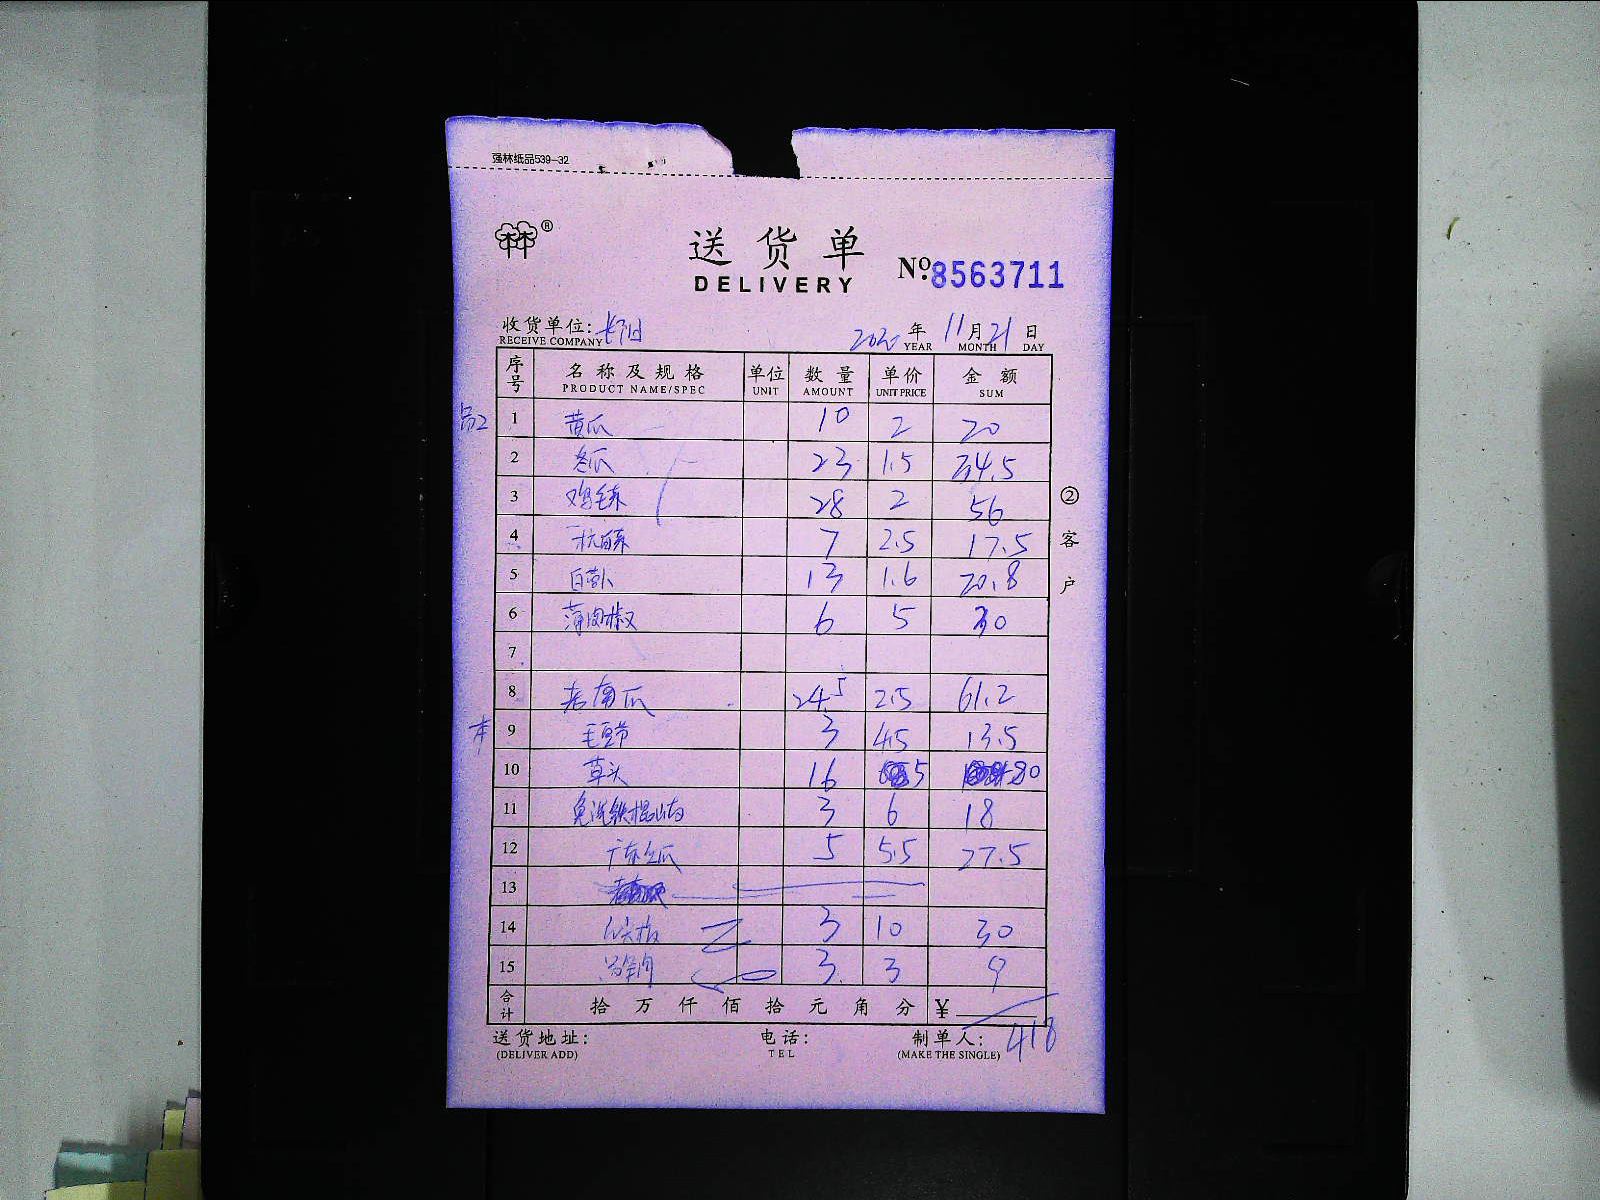 强林纸品539-32
林®
送货单
DELIVERY
№:8563711
收货单位:
RECEIVE COMPANY
2020年11月21日
YEAR MONTH DAY
序号 名称及规格 单位 数量 单价 金额
PRODUCT NAME/SPEC UNIT AMOUNT UNIT PRICE SUM
1 黄瓜 10 2 20
2 冬瓜 23 1.5 34.5
3 鸡毛菜 28 2 56
4 杭白菜 7 2.5 17.5
5 白萝卜 13 1.6 20.8
6 薄肉椒 6 5 30
7
8 老南瓜 24.5 2.5 61.2
本
9 毛豆节 3 4.5 13.5
10 草头 16 5 80
11 免洗铁棍山药 3 6 18
12 5 5.5 27.5
13
14 3 10 30
15 3 3 9
合计 拾万仟佰拾元角分 ¥
418
送货地址: 电话: 制单人:
(DELIVER ADD) TEL (MAKE THE SINGLE)
②客户